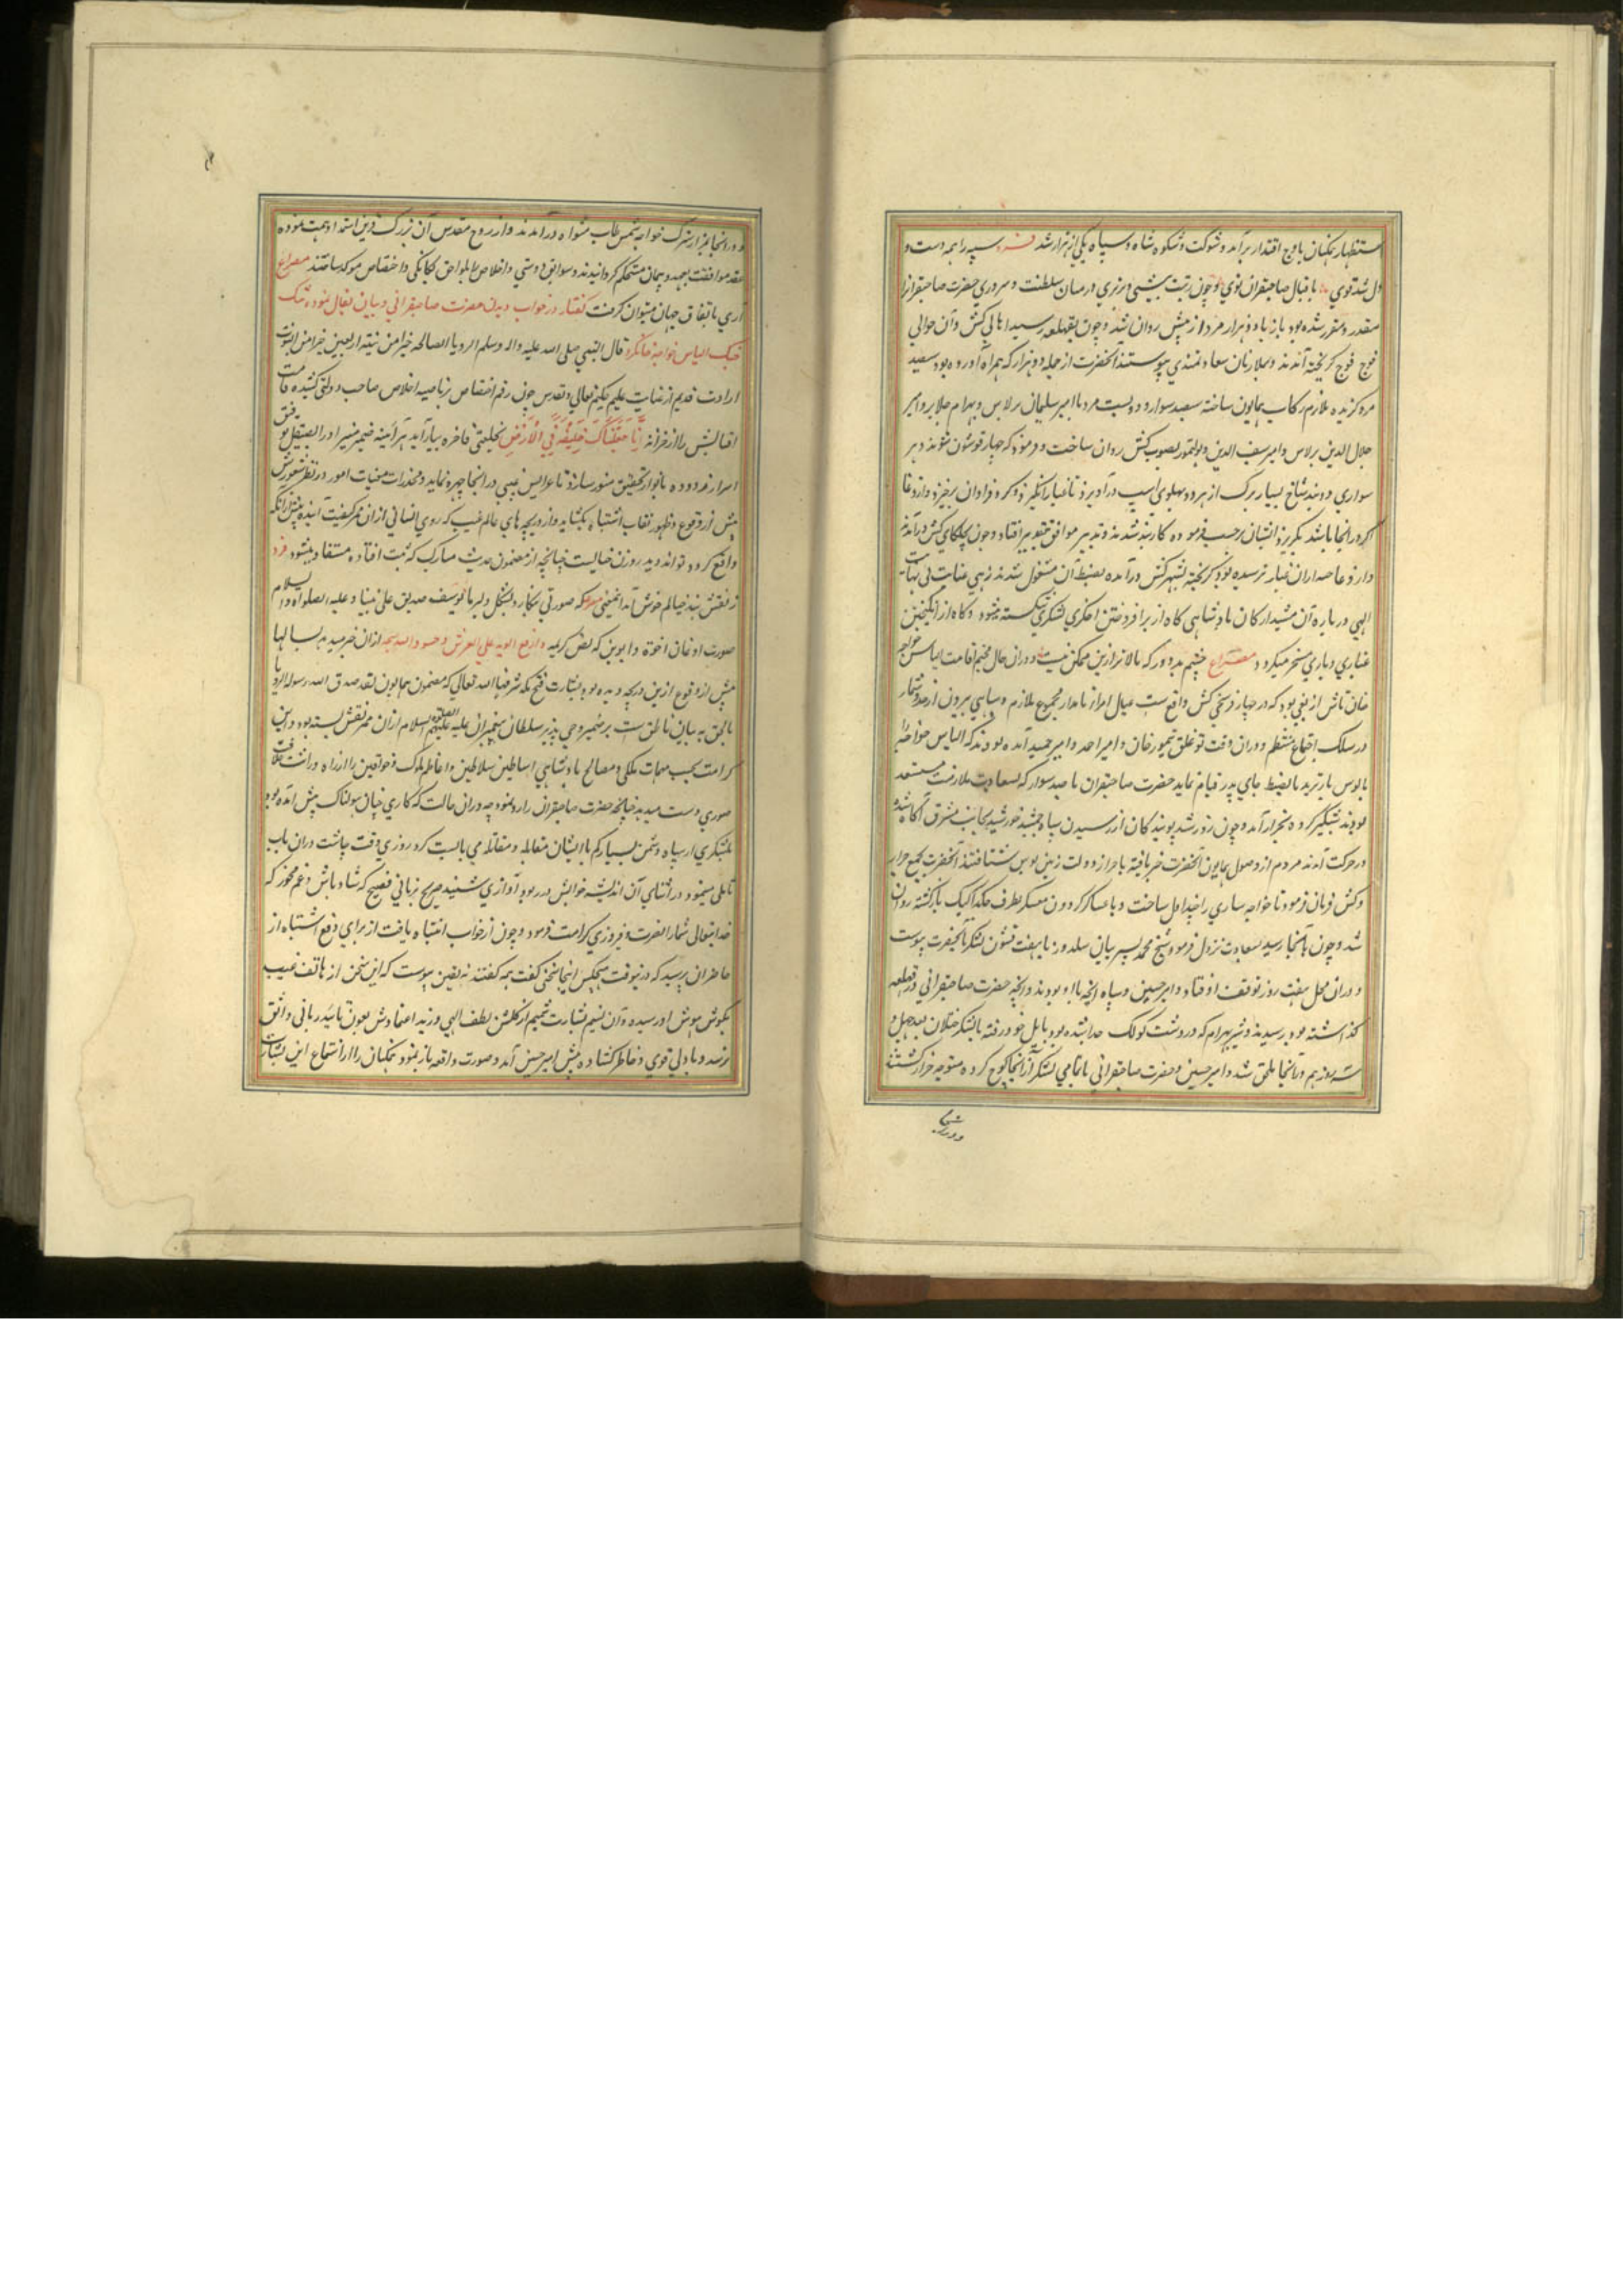 استظهار همکنان باوج اقتدار برآمد و شوکت و شکوه شاه و سپاه یکی از هزار شد سپه را همه دست و
دل شد قوی باقبال صاحبقران نوی و چون رتبت پیشی و برتری در میان سلطنت و سروری حضرت صاحبقران را
مقدر و مقرر شده بود باز با دو هزار مرد از پیش روان شد و چون بقهلغه رسید اهالی کش و آن حوالی
فوج فوج کریخته آمدند و بملازمان سعادتمندی پیوستند آنحضرت از جمله دو هزار که همراه آورده بود سیصد
مرد کزیده ملازم رکاب همایون ساخته سیصد سوار و دویست مرد با امیر سلیمان برلاس و بهرام جلایر و امیر
جلال الدین برلاس و امیر سیف الدین و یولتمور بصوب کش روان ساخت و فرمود که چهار قوشون شوند و هر
سواری دو بند شاخ بسیار برک از هر دو پهلوی اسپ درآویزند تا غبار انکیز و کرد فراوان برخیزد و داروغا
اکر در انجا باشد بکریزد ایشان برحسب فرموده کاربند شدند و تدبیر موافق تقدیر افتاد و چون بجلکای کش درآمدند
داروغا حصاران غبار ترسیده بود کریخته بشهر کش درآمده بضبط آن مشغول شدند زهی عنایت بی نهایت
الهی درباره آن مشید ارکان پادشاهی که از برافروختن اخکری لشکری شکسته میشود و کاه از انکیختن
غباری دیاری مسخر میکردد مصراع چشم بد دور که بالاتر ازین ممکن نیست و دران حال مخیم اقامت الیاس خواجه
خان تاش اریغی بود که در چهار فرسخی کش واقع ست عیال امرا نامدار مجموع ملازم و سپاهی بیرون از حد و شمار
در سلک اجتماع منتظم و دران وقت توغلق تیمور خان و امیر احمد و امیر حمید آمده بودند که الیاس خواجه را
بالوس باز برند تا بضبط جای پدر قیام نماید حضرت صاحبقران با صد سوار که بسعادت ملازمت مستسعد
بودند شبکیر کرده بخزار آمد و چون روز شد پوینده کان از رسیدن سپاه جمشید خورشید بجانب مشرق آکاه شده
در حرکت آمدند مردم از وصول همایون آنحضرت خبر یافته باحراز دولت زمین بوس شتافتند آنحضرت بجمع خزار
و کش فرمان فرمود تا خواجه ساری را خدا اهل ساخت و با عساکر کردون معسکر بطرف حکدا کیک بازکشته روان
شد و چون بانجا رسید سعادت نزول فرمود و شیخ محمد پسر بیان سلدوز با هفت قشون لشکر بآنحضرت پیوست
و دران محل هفت روز توقف افتاد و امیر حسین و سپاه انچه با او بودند و انچه حضرت صاحبقرانی در قهلغه
کذاشته بود برسیدند و شیر بهرام که در دشت کولک جدا شده بود و بایل خود رفته با لشکر ختلان بعد چهل و
سه روز هم در انجا ملحق شد و امیر حسین و حضرت صاحبقرانی با تمامی لشکر از آنجا کوچ کرده متوجه خزار کشتند
و در انجا
و در آنجا بمزار متبرک خواجه شمس طاب مثواه درآمدند و از روح مقدس آن بزرک دین استمداد همت نموده
عقد موافقت بعهد و پیمان مستحکم کردانیدند و سوابق دوستی و اخلاص را بلواحق یکانکی و اختصاص موکد ساختند مصراع
آری باتفاق جهان میتوان کرفت کفتار در خواب دیدن حضرت صاحبقرانی و بیان تفال نموده بجنک
جنک الیاس خواجه خان کرد قال النبی صلی الله علیه و اله وسلم الرویا الصالحه خیر من ستة اربعین خیر من النبوت
ارادت قدیم از عنایت علیم حکیم تعالی و تقدس چون رقم اختصاص بر ناصیه اخلاص صاحب دولتی کشیده قامت
اقبالش را از خزانه اِنَّا جَعَلْنَاکَ خَلِیفَةً فِی الْاَرْضِ بخلعتی فاخره بیاراید هر آینه ضمیر منیر او را بصیقل توفیق
اسرار زدوده بانوار تحقیق منور سازد تا عرایس غیبی در انجا چهره نماید و مخدرات مغیبات امور در نظر شعورش
پیش از وقوع و ظهور نقاب اشتباه بکشاید و از دریچه های عالم غیب که روی انسانی از ان ممر کیفیت آینده پیش از انکه
واقع کردد تواند دید روزن خیالیست چنانچه از مضمون حدیث مبارک که ثبت افتاده مستفاد میشود فرد
ز نقش بند خیالم خوش آمد این معنی که صورتی نکارد بشکل دلبر ما یوسف صدیق علی نبینا و علیه الصلواه و السلام
صورت اذعان اخوة و ابوین که نص کریمه و ارفع ابویه علی العرش و خروا له سجدا از ان خبر میدهد بسالها
پیش از وقوع ازین دریچه دیده بود و بشارت فتح مکه شرفها الله تعالی که مضمون همایون لقد صدق الله رسوله الرویا
بالحق به بیان ناطق است بر ضمیر وحی پذیر سلطان پیغمبران علیه و علیهم الصلوة السلام از ان ممر نقش بسته بود و این
کرامت بحسب مهمات ملکی و مصالح پادشاهی اساطین سلاطین و اعاظم ملوک و خواقین را از راه وراثت خلافت
صوری دست میدهد چنانچه حضرت صاحبقران را روی نمود چه دران حالت که کاری چنان هولناک پیش آمده بود
بلشکری از سپاه دشمن بسیار کم با ایشان مقابله و مقاتله می بایست کرد روزی وقت چاشت دران باب
تاملی مینمود در اثنای آن اندیشه خوابش در ربود آوازی شنید صریح بزبانی فصیح که شاد باش و غم مخور که
خدایتعالی شما را نصرت و فیروزی کرامت فرمود و چون از خواب انتباه یافت از برای دفع اشتباه از
حاضران پرسید که درین وقت هیچکس اینجا سخنی کفت همه کفتند نه یقین پیوست که این سخن از هاتف غیب
بکوش هوش او رسیده و آن نسیم بشارت شمیم از کلشن لطف الهی وزید اعتمادش بعون تایید ربانی واثق
تر شد و با دلی قوی و خاطر کشاده پیش امیر حسین آمد و صورت واقعه باز نمود همکنان را از استماع این بشارت